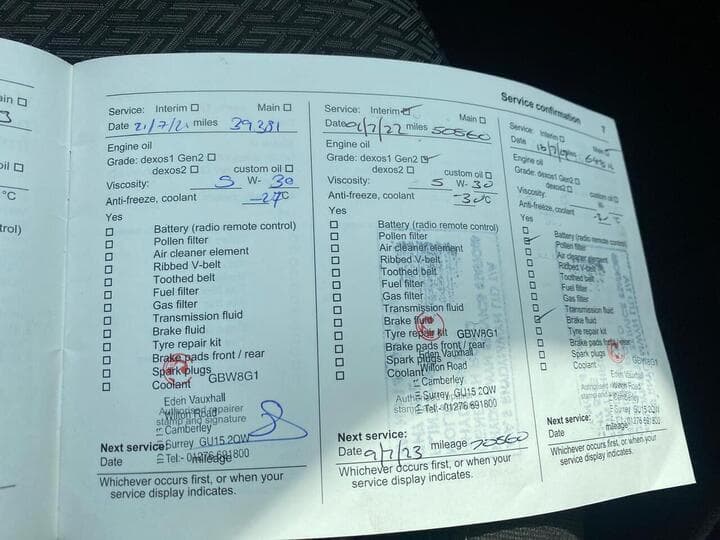 ain
3
oil
°C
trol)
Service confirmation 7
Service: Interim Main
Date 21/7/21 miles 39,381
Engine oil
Grade: dexos1 Gen2
dexos2 custom oil
Viscosity: 5 W- 30
Anti-freeze, coolant -27°C
Yes
Battery (radio remote control)
Pollen filter
Air cleaner element
Ribbed V-belt
Toothed belt
Fuel filter
Gas filter
Transmission fluid
Brake fluid
Tyre repair kit
Brake pads front / rear
Spark plugs
Coolant GBW8G1
Eden Vauxhall
Wilton Road
Authorised repairer
stamp and signature
Camberley
Surrey GU15 2QW
Tel:- 01276 691800
Next service:
Date mileage
Whichever occurs first, or when your
service display indicates.
Service: Interim Main
Date miles 50560
Engine oil
Grade: dexos1 Gen2
dexos2 custom oil
Viscosity: 5 W- 30
Anti-freeze, coolant -30°C
Yes
Battery (radio remote control)
Pollen filter
Air cleaner element
Ribbed V-belt
Toothed belt
Fuel filter
Gas filter
Transmission fluid
Brake fluid
Tyre repair kit GBW8G1
Brake pads front / rear
Spark plugs
Coolant
Eden Vauxhall
Wilton Road
Camberley
Surrey GU15 2QW
Tel:- 01276 691800
Next service:
Date 9/7/23 mileage 70560
Whichever occurs first, or when your
service display indicates.
Service: Interim Main
Date miles
Engine oil
Grade: dexos1 Gen2
dexos2 custom oil
Viscosity: W-
Anti-freeze, coolant
Yes
Battery (radio remote
Pollen filter
Air cleaner element
Ribbed V-belt
Toothed belt
Fuel filter
Gas filter
Transmission fluid
Brake fluid
Tyre repair kit
Brake pads front/rear
Spark plugs
Coolant GBW8G1
Eden Vauxhall
Wilton Road
Camberley
Surrey GU15 2QW
Tel:- 01276 691800
Next service:
Date mileage
Whichever occurs first, or when your
service display indicates.